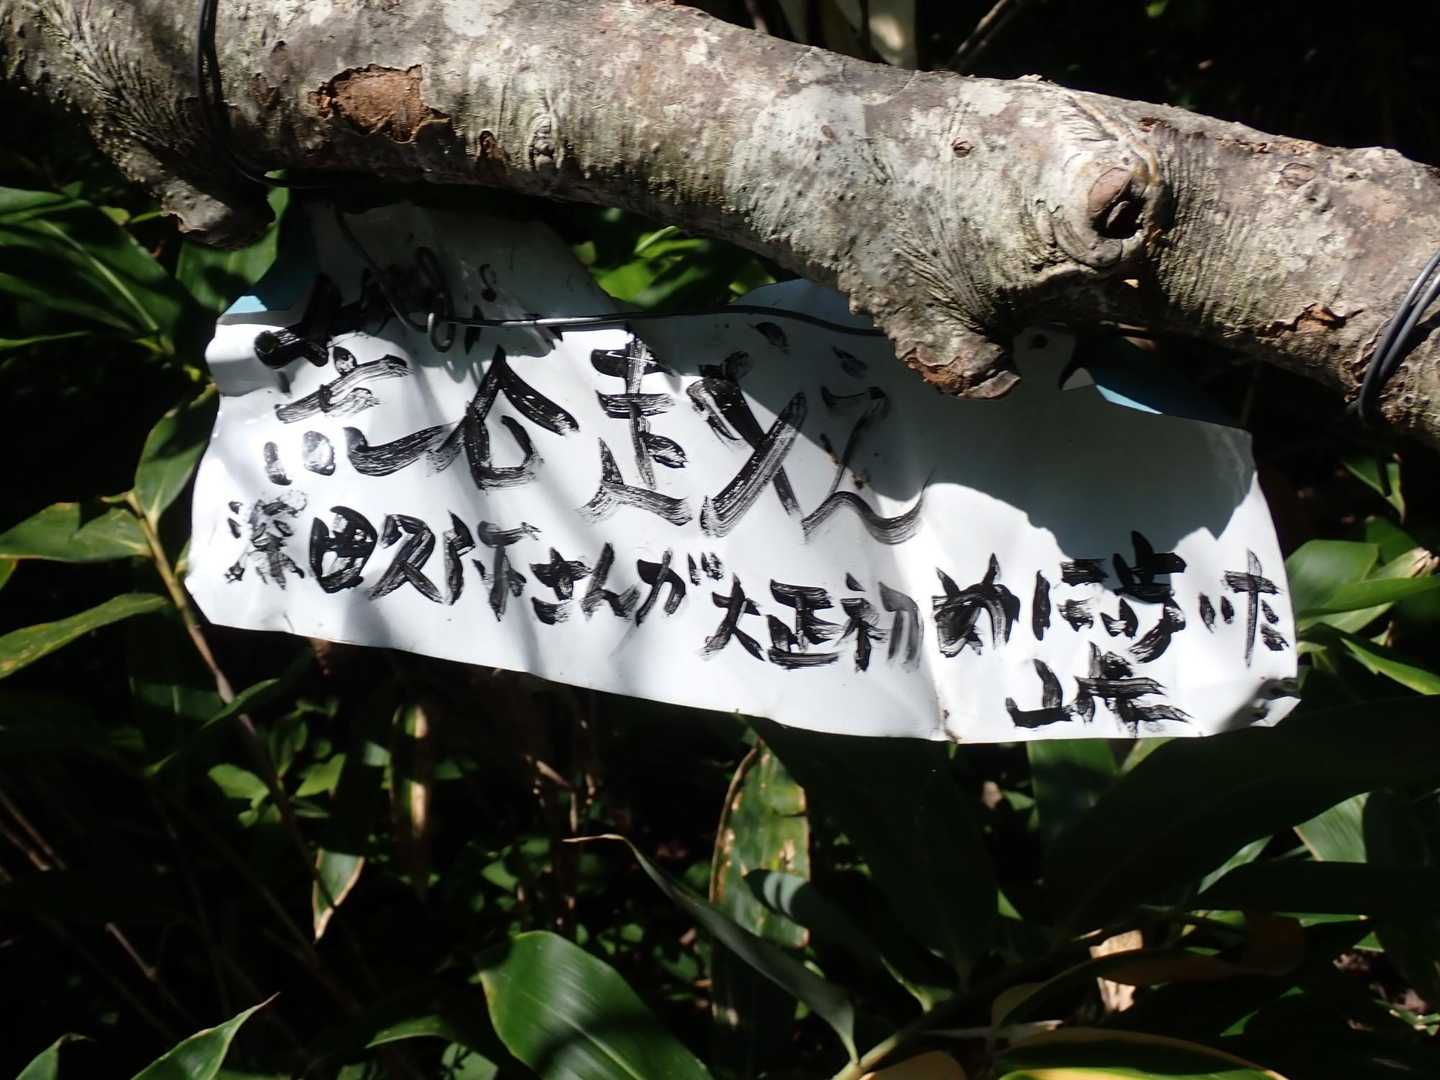 谷越え
深田久弥さんが大正初めに歩いた
山旅